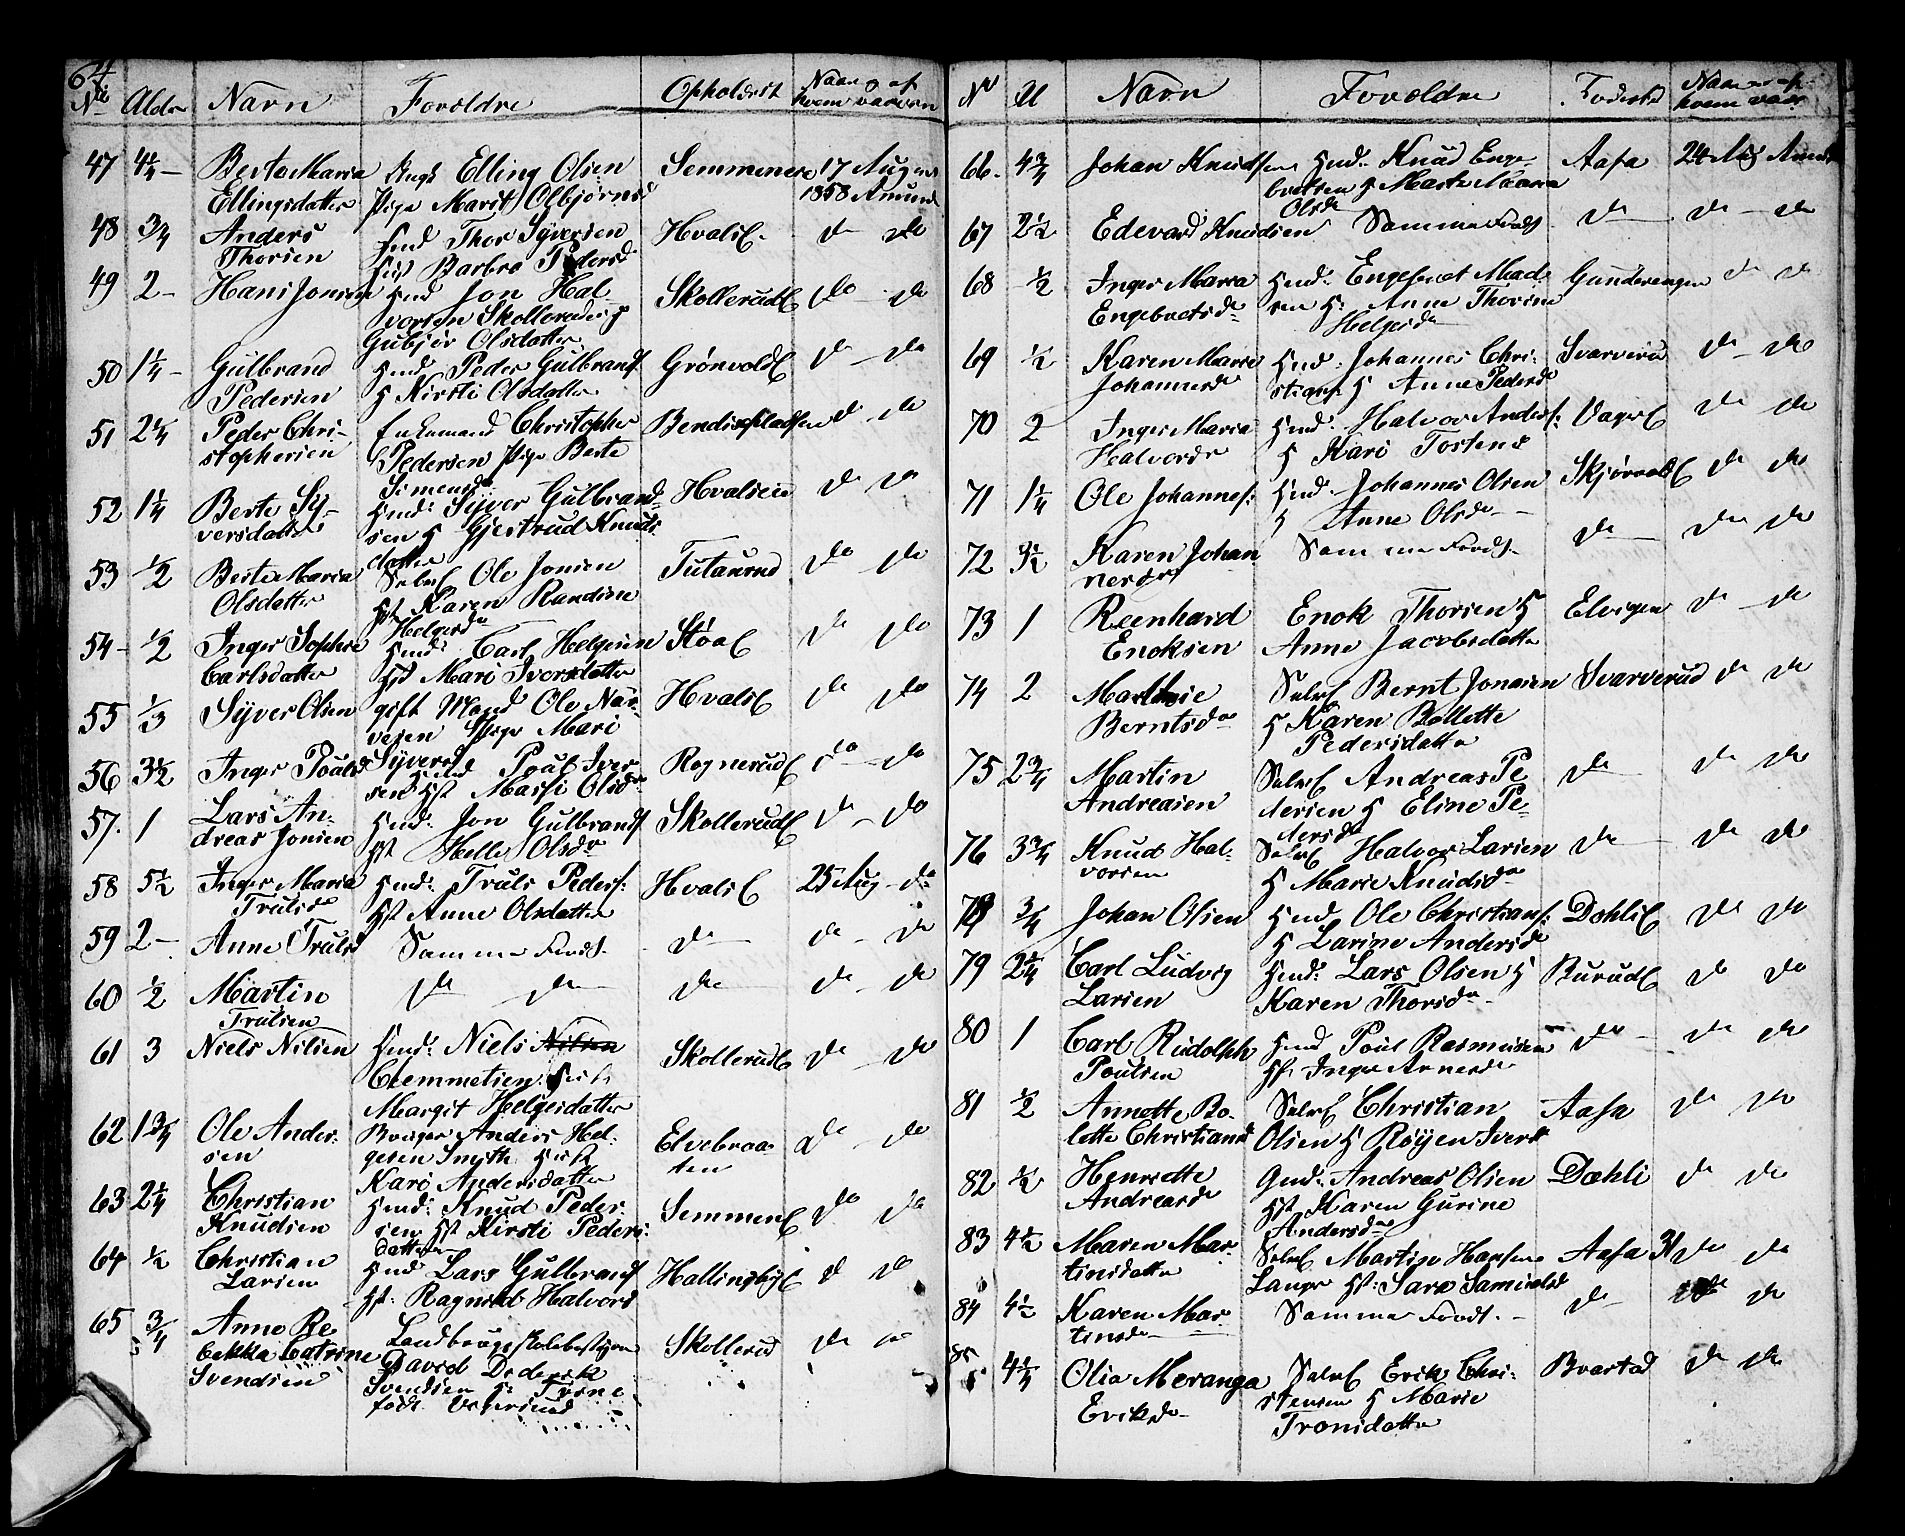 64
No Alder Navn Forældre Opholdsst Naar og af hvem vaccin
47 4¼ Berte Maria Ellingsdatter Ungk Elling Olsen Pige Marit Olbjørnsd Semmenere 17 August 1858 Amund
48 ¾ Anders Thorsen Hmd Thor Syversen Hust Barbro Pedersd HvalsE do do
49 2 Hans Jonsen Hmd Jon Halvorsen Skollerudeie Gubjør Olsdatter SkollerudE do do
50 1¼ Gulbrand Pedersen Hmd Peder Gulbrands H Kirsti Olsdatter GrønvoldE do do
51 2¼ Peder Christophersen Enkemand Christopher Pedersen Pige Berte Simensd Bendixpladsen d do
52 1¼ Berte Syversdatter Hmd: Syver Gulbrandsen H Gjertrud Knudsdatter Hvalsen do do
53 ½ Berte Maria Olsdatter SelvE Ole Jonsen Hst Karen Randine Helgesdr Tutaurud do do
54 ½ Inger Sophie Carlsdatter Hmd: Carl Helgesen Hst Mari Iversdatter StøaE do do
55 ⅓ Syver Olsen gift Mand Ole Narvesen Pige Mari Syversd HvalsE do do
56 3½ Inger Poulsd Hmd Poul Iversen Hst Massi Olsdr RognerudE do do
57. 1 Lars Andreas Jonsen Hmd: Jon Gulbrands Hst Helle Olsdr SkollerudE do do
58 5½ Inger Maria Trulsdr Hmd: Truls Peders: Hst Anne Olsdatter HvalsE 25 Aug do
59 2 Anne Trulsd Samme Foræld. do do do
60 ½ Martin Trulsen do do do do do
61 3 Niels Nilsen Hmd: Niels Nilsen Clemmetsen: Hust: Margit Helgesdatter SkollerudE do do
62 1¾ Ole Andersen Bruger Anders Helgesen Smyth Hust Kari Andersdatter Elvebraaten do do
63 2¼ Christian Knudsen Hmd: Knud Pedersen Hst Kirsti Pedersdatter SemmenE do do
64 ½ Christian Larsen Hmd Lars Gulbrands Hst: Ragnild Halvorsd HallinsbyE d do
65 ¾ Anne Rebekka Catrine Svendsen Landbrugsskolebestyrer David Diderik Svendsen H: født Skollerud do
No Al Navn Forældre Fødested Naar og af hvem vacc
66. 4¾ Johan Knudsen Hmd: Knud Engebretsen H Marte Maria Olsdr Aasa 24 Aug Amund
67 2½ Edevard Knudsen Samme Foræld do do do
68 ½ Inger Maria Engebretsdr Hmd: Engebret Madsen H: Anne Thorine Helgesdr Gunderengen do do
69 ½ Karen Marie Johannesdr Hmd: Johannes Christians H Anne Pedersdr Svarverud do do
70 2 Inger Maria Halvorsdr Hmd: Halvor Anders: H Kari Tostens VagerE do do
71 1¼ Ole Johannes: Hmd: Johannes Olsen H Anne Olsdr SkjørvoldE do do
72 3½ Karen Johannesdr Samme Foræld. do do do
73 1 Reenhard Enoksen Enok Thorsen H Anne Jacobsdatter Elvigen do do
74 2 Marthie Berntsdr SelvE Bernt Jonasen H Karen Bollette Pedersdatter Svarverud do do
75 2¾ Martin Andreasen SelvE Andreas Pedersen H Eline Pedersdr do do do
76 3¾ Knud Halvorsen SelvE Halvor Larsen H Marie Knudsdr do do do
78 ¾ Johan Olsen Hmd Ole Christians: H Larine Andersdr DæhliE do do
79 2¼ Carl Ludvig Larsen Hmd: Lars Olsen H Karen Thorsdr BurudE do do
80 1 Carl Rudolph Poulsen Hmd Poul Rasmusen Hst Inger Arnesdr do do do
81 ½ Annette Bolette Christiansd SelvE Christian Olsen H Røyen Iversd Aasa do do
82 ½ Henriette Andreasdr Gmd: Andreas Olsen Hst Karen Gurine Andersdr Dæhli do do
83 4½ Maren Martinsdatter SelvE Martin Hansen Lange Hst: Sara Samuelsd Aasa 31 do do
84 4½ Karen Martinsdr Samme Foræld. do do do
85 4¼ Olia Meranga Eriksdr SelvE Erik Christensen H Marie Tronsdatter Bvestad do do